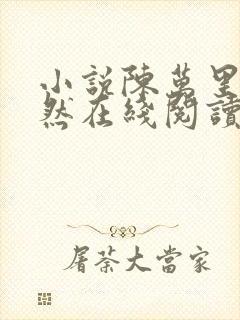 小說陳萬里
然在綫閱讀
屠荼大當家